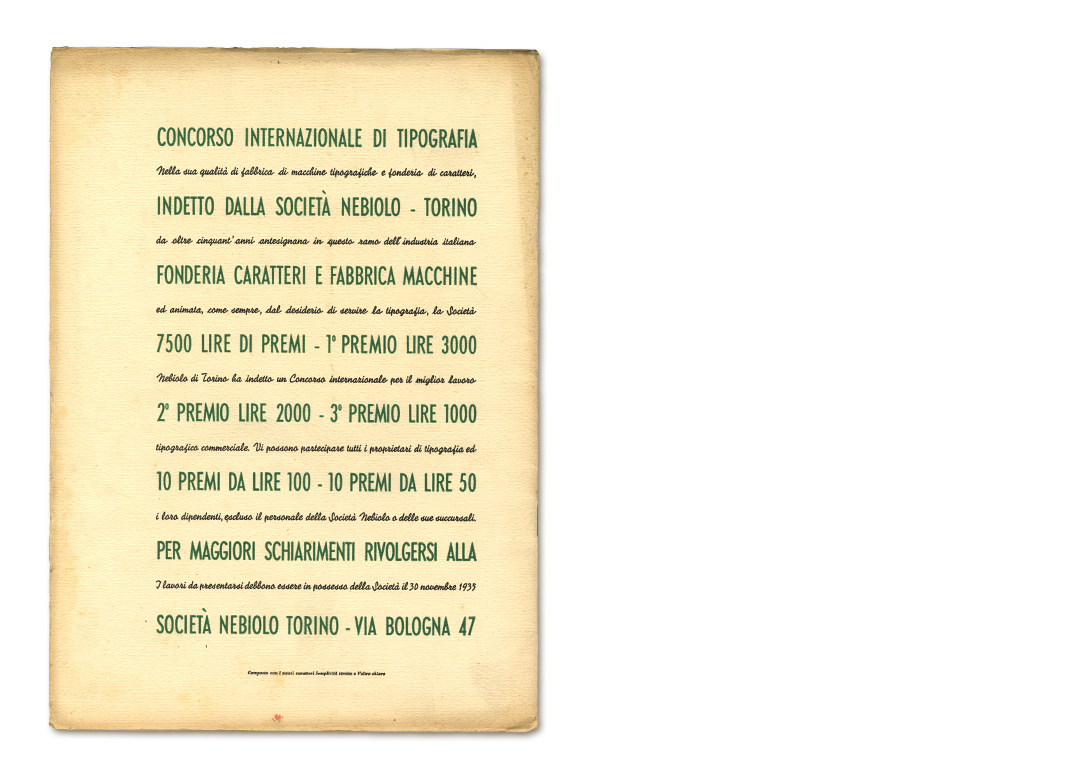 CONCORSO INTERNAZIONALE DI TIPOGRAFIA
Nella sua qualità di fabbrica di macchine tipografiche e fonderia di caratteri,
INDETTO DALLA SOCIETÀ NEBIOLO - TORINO
da oltre cinquant'anni antesignana in questo ramo dell'industria italiana
FONDERIA CARATTERI E FABBRICA MACCHINE
ed animata, come sempre, dal desiderio di servire la tipografia, la Società
7500 LIRE DI PREMI - 1º PREMIO LIRE 3000
Nebiolo di Torino ha indetto un Concorso internazionale per il miglior lavoro
2º PREMIO LIRE 2000 - 3º PREMIO LIRE 1000
tipografico commerciale. Vi possono partecipare tutti i proprietari di tipografia ed
10 PREMI DA LIRE 100 - 10 PREMI DA LIRE 50
i loro dipendenti, escluso il personale della Società Nebiolo o delle sue succursali.
PER MAGGIORI SCHIARIMENTI RIVOLGERSI ALLA
I lavori da presentarsi debbono essere in possesso della Società il 30 novembre 1935
SOCIETÀ NEBIOLO TORINO - VIA BOLOGNA 47
Composto con i nostri caratteri Semplicità stretto e Veltro chiaro